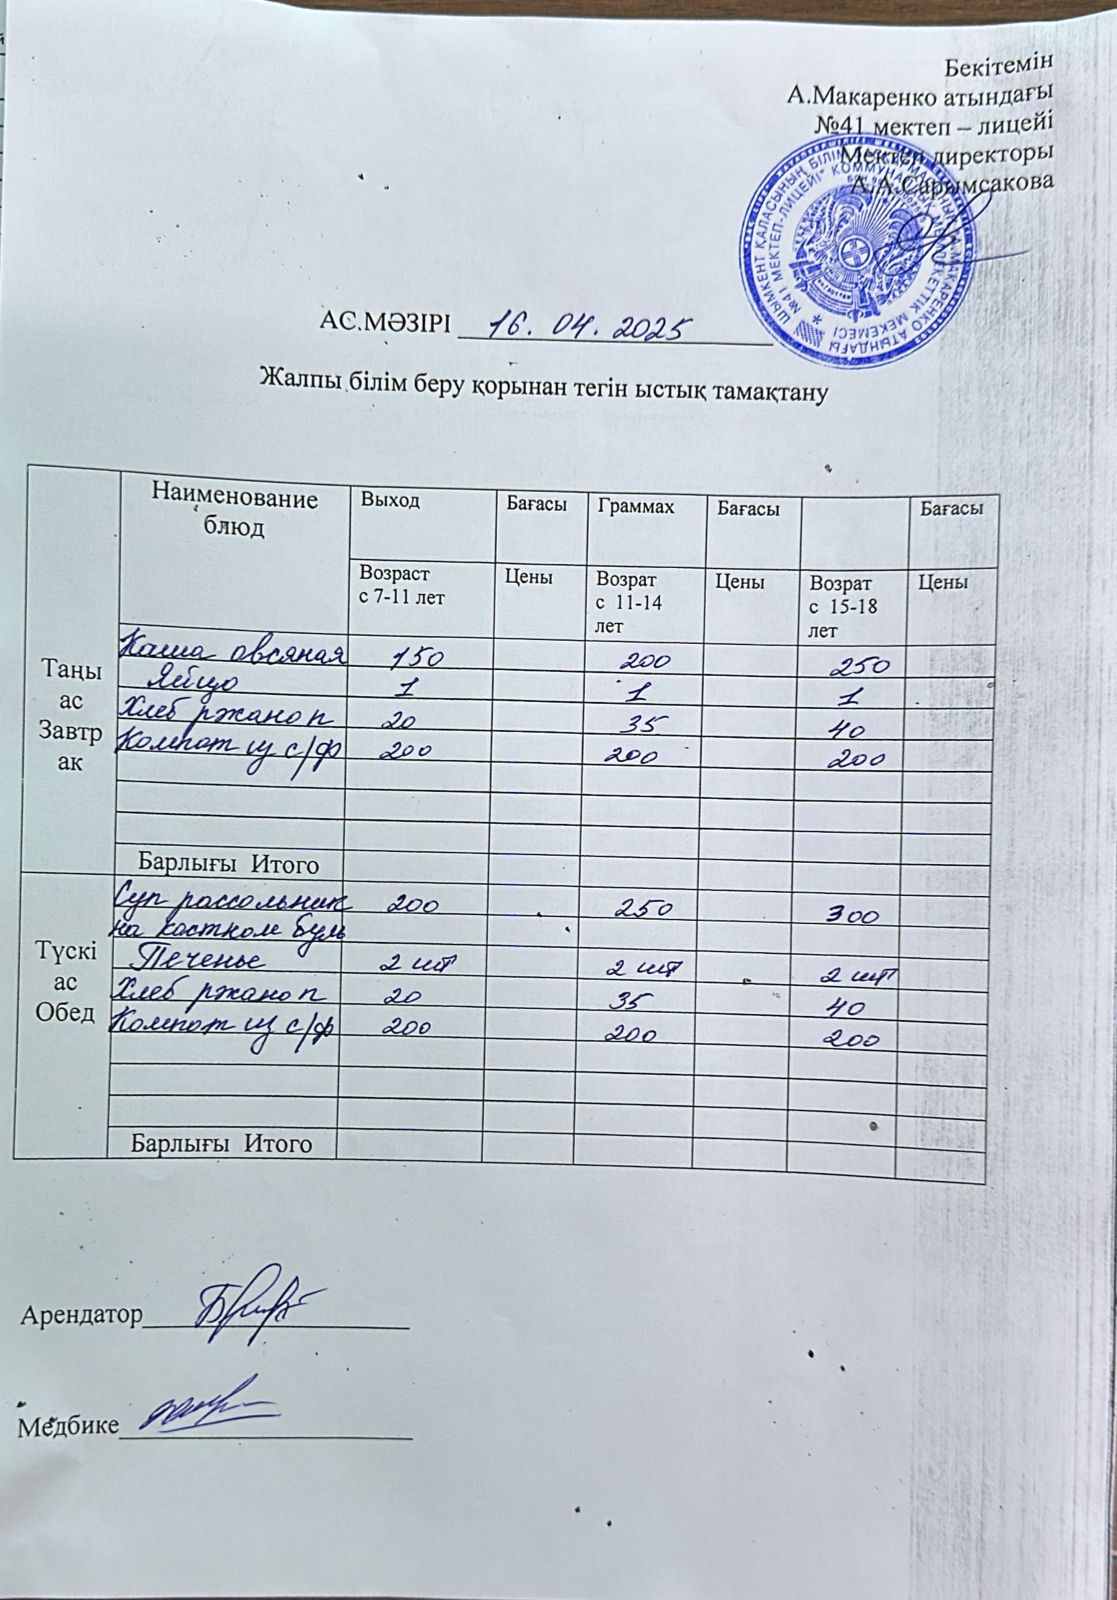 Бекітемін
А.Макаренко атындағы
№41 мектеп – лицейі
Мектеп директоры
А.А.Сарымсакова
АС.МӘЗІРІ 16. 04. 2025
Жалпы білім беру қорынан тегін ыстық тамақтану
Наименование блюд Выход Бағасы Граммах Бағасы Бағасы
Возраст с 7-11 лет Цены Возрат с 11-14 лет Цены Возрат с 15-18 лет Цены
Таңы ас Завтрак
Каша овсяная 150 200 250
Яйцо 1 1 1
Хлеб ржаноп 20 35 40
Компот из с/ф 200 200 200
Барлығы Итого
Түскі ас Обед
Суп рассольник 200 250 300
на костном буль
Печенье 2 шт 2 шт 2 шт
Хлеб ржаноп 20 35 40
Компот из с/ф 200 200 200
Барлығы Итого
Арендатор
Медбике